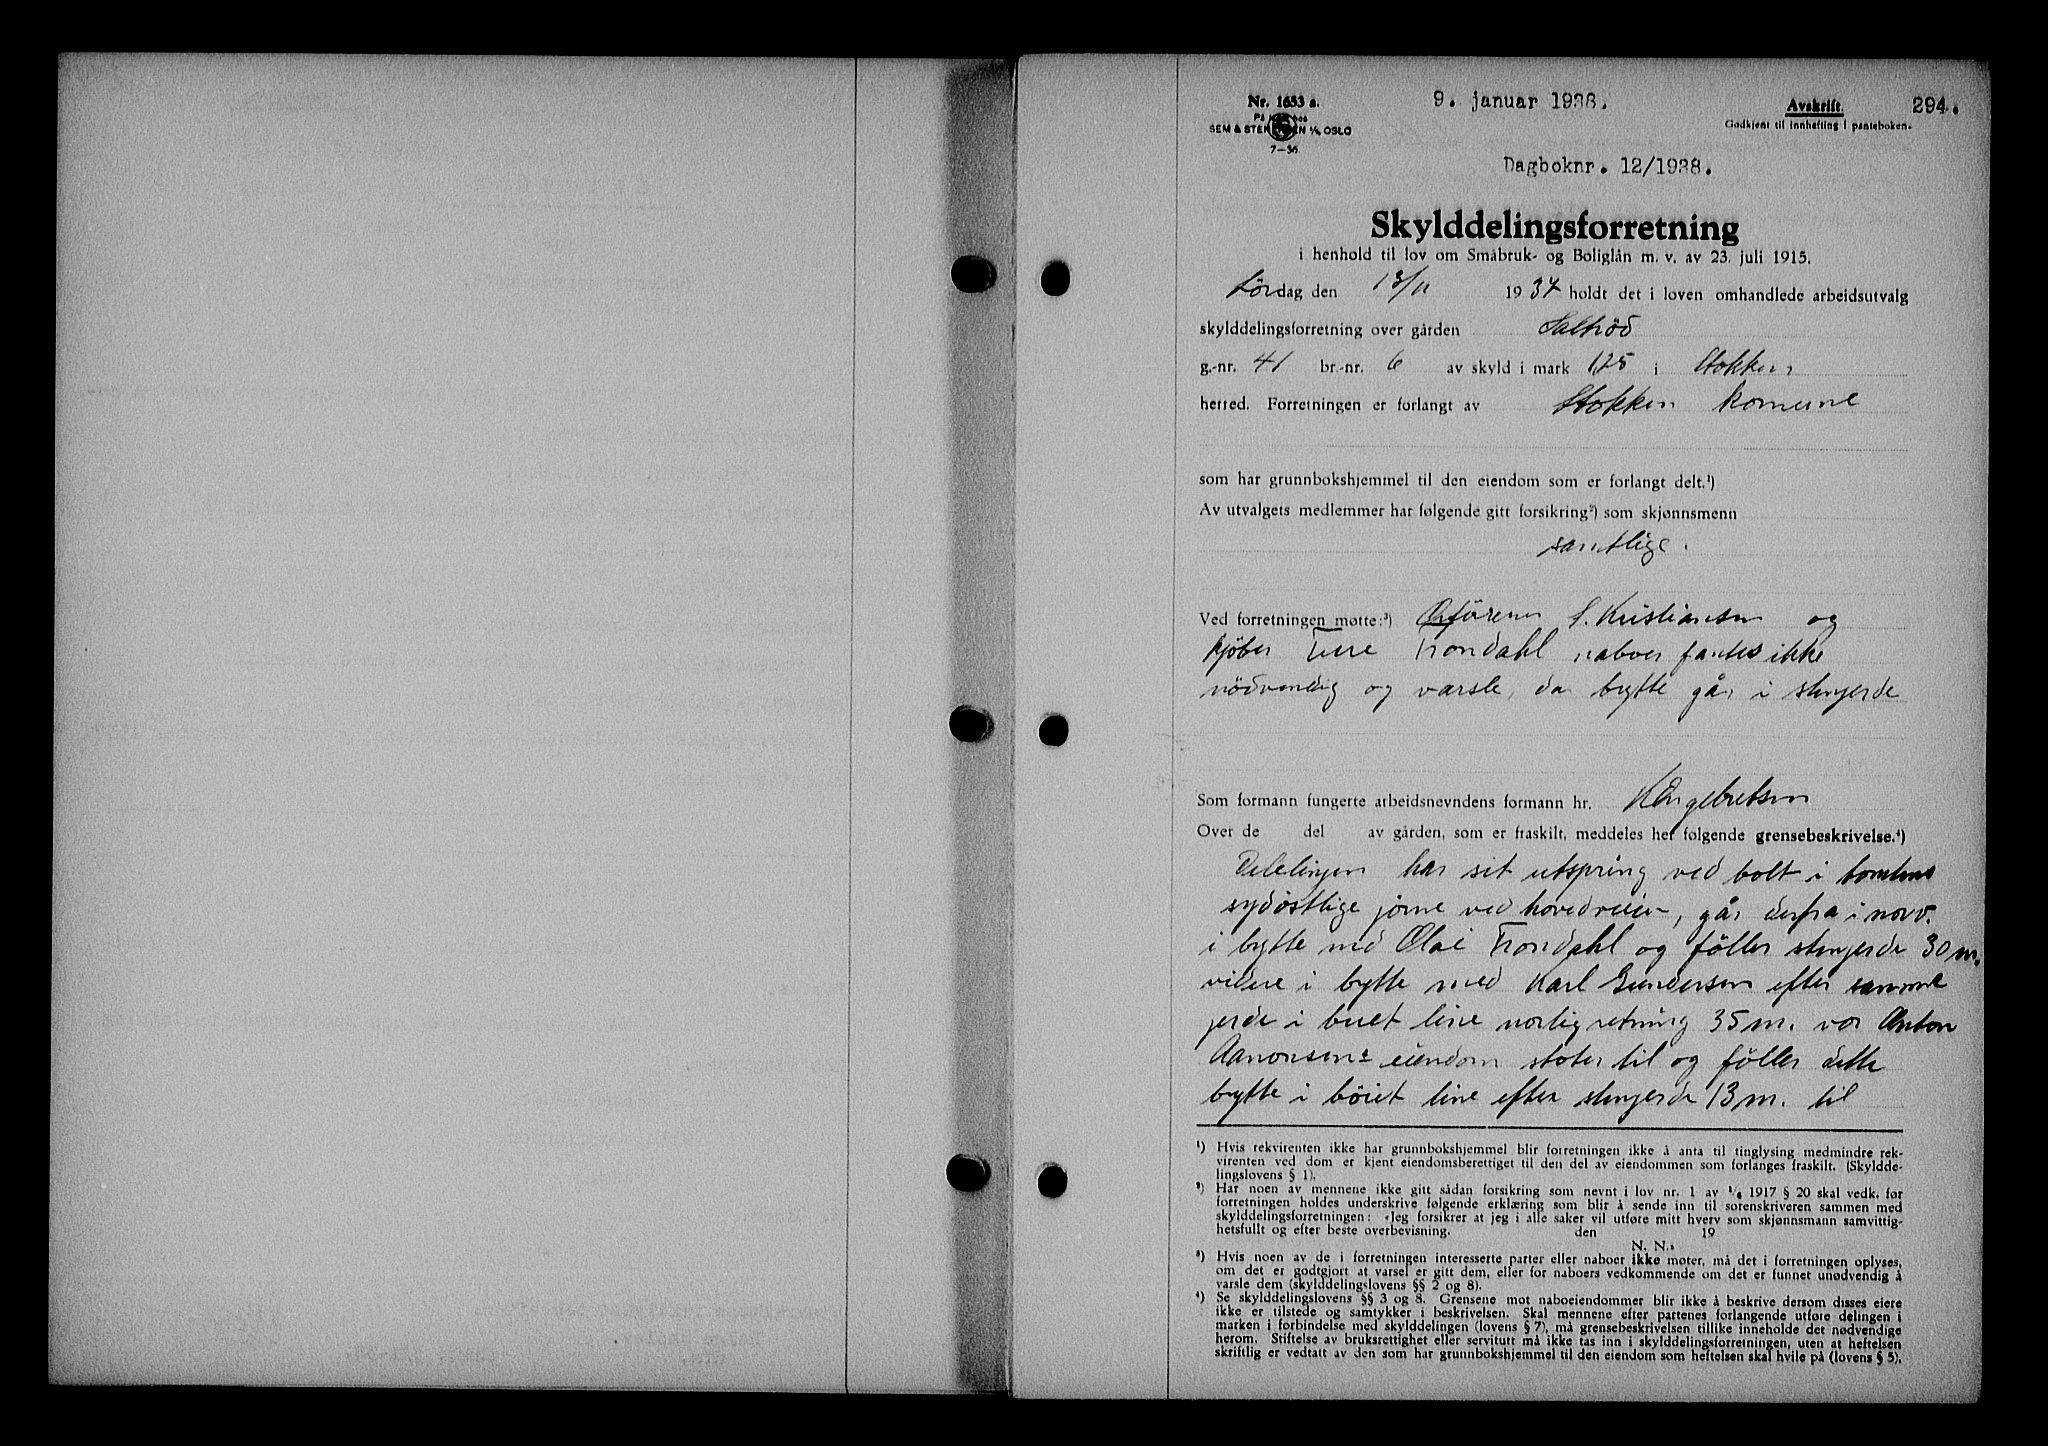 Nr. 1653 a.
9. januar 1938.
Avskrift.
294.
SEM & STENERSEN A/S, OSLO
Godkjent til innhefting i panteboken.
7-36.
Dagboknr. 12/1938.
Skylddelingsforretning
i henhold til lov om Småbruk- og Boliglån m. v. av 23. juli 1915.
Lördag den 13/11 1934 holdt det i loven omhandlede arbeidsutvalg
skylddelingsforretning over gården Saltröd
g.-nr. 41 br.-nr. 6 av skyld i mark 1,25 i Stokken
herred. Forretningen er forlangt av Stokken komune
som har grunnbokshjemmel til den eiendom som er forlangt delt.¹)
Av utvalgets medlemmer har følgende gitt forsikring²) som skjønnsmenn
samtlige.
Ved forretningen møtte:³) Ordförerer S. Kristiansen og
kjöber Ture Trondahl naboer fantes ikke
nödvendig og varsle, da bytte går i stengjerde
Som formann fungerte arbeidsnevndens formann hr. K Engebretsen
Over de del av gården, som er fraskilt, meddeles her følgende grensebeskrivelse.⁴)
Delelinjen har sit utspring ved bolt i tomtens
sydöstlige jörne ved hovedveien, går derfra i nordv.
i bytte med Olai Trondahl og föller stengjerde 30 m.
videre i bytte med Karl Gundersen efter samme
jerde i buet line norligretning 35 m. vor Anton
Aanonsens eiendom stöter til og föller dette
bytte i böiet line efter stengjerde 13 m. til
¹) Hvis rekvirenten ikke har grunnbokshjemmel blir forretningen ikke å anta til tinglysing medmindre rek-
virenten ved dom er kjent eiendomsberettiget til den del av eiendommen som forlanges fraskilt. (Skyldde-
lingslovens § 1).
²) Har noen av mennene ikke gitt sådan forsikring som nevnt i lov nr. 1 av 1/6 1917 § 20 skal vedk. før
forretningen holdes underskrive følgende erklæring som blir å sende inn til sorenskriveren sammen med
skylddelingsforretningen: «Jeg forsikrer at jeg i alle saker vil utføre mitt hverv som skjønnsmann samvittig-
hetsfullt og efter beste overbevisning. den 19
N. N.»
³) Hvis noen av de i forretningen interesserte parter eller naboer ikke møter, må det i forretningen oplyses,
om det er godtgjort at varsel er gitt dem, eller for naboers vedkommende om det er funnet unødvendig å
varsle dem (skylddelingslovens §§ 2 og 8).
⁴) Se skylddelingslovens §§ 3 og 8. Grensene mot naboeiendommer blir ikke å beskrive dersom disses eiere
ikke er tilstede og samtykker i beskrivelsen. Skal mennene efter partenes forlangende utføre delingen i
marken i forbindelse med skylddelingen (lovens § 7), må grensebeskrivelsen tillike inneholde det nødvendige
herom. Stiftelse av bruksrettighet eller servitutt må ikke tas inn i skylddelingsforretningen, uten at heftelsen
skriftlig er vedtatt av den som har grunnbokshjemmel til den eiendom som heftelsen skal hvile på (lovens § 5).